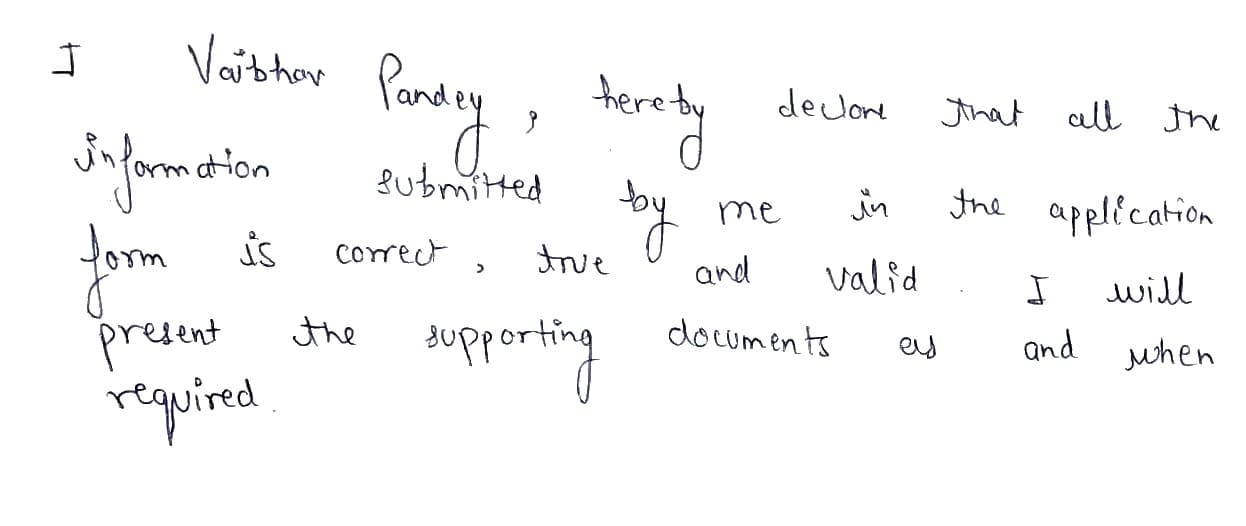 I Vaibhav Pandey, hereby declare that all the
information submitted by me in the application
form is correct, true and valid. I will
present the supporting documents as and when
required.